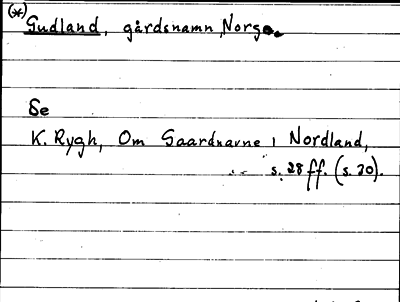 (*) Gudland, gårdsnamn, Norge.
Se
K. Rygh, Om Gaardnavne i Nordland,
s. 28 ff. (s. 30).